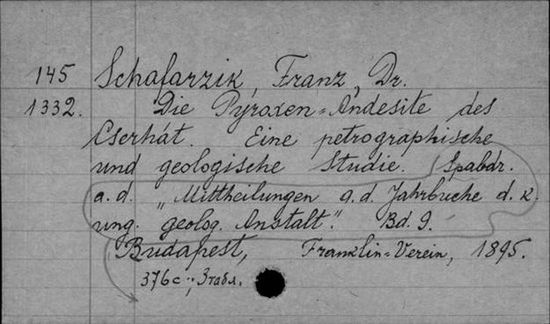 145 Schafarzik, Franz, Dr.
1332. Die Pyroxen-Andesite des
Cserhát. Eine petrographische
und geologische Studie. Spabdr.
a. d. „Mittheilungen a. d. Jahrbuche d. k.
ung. geolog. Anstalt“. Bd. 9.
Budapest, Franklin-Verein, 1895.
376 c.; 3 табл.